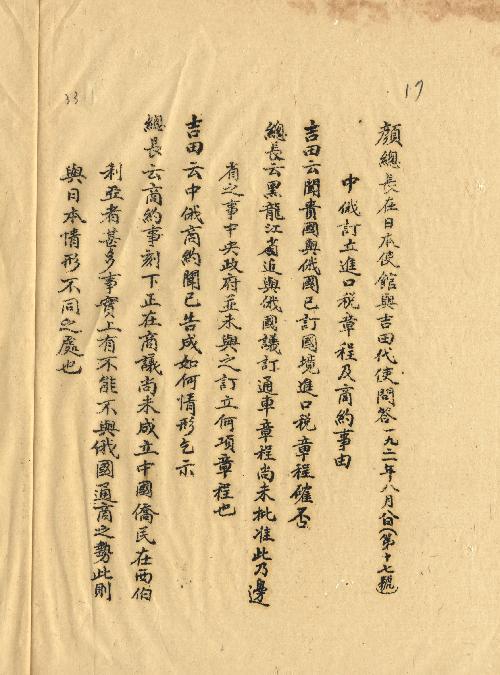 17
33
顏總長在日本使館與吉田代使問答一九二一年八月八日(第十七號)
中俄訂立進口稅章程及商約事由
吉田云聞貴國與俄國已訂國境進口稅章程確否
總長云黑龍江省近與俄國議訂通車章程尚未批准此乃邊
省之事中央政府並未與之訂立何項章程也
吉田云中俄商約聞已告成如何情形乞示
總長云商約事刻下正在商議尚未成立中國僑民在西伯
利亞者甚多事實上有不能不與俄國通商之勢此則
與日本情形不同之處也